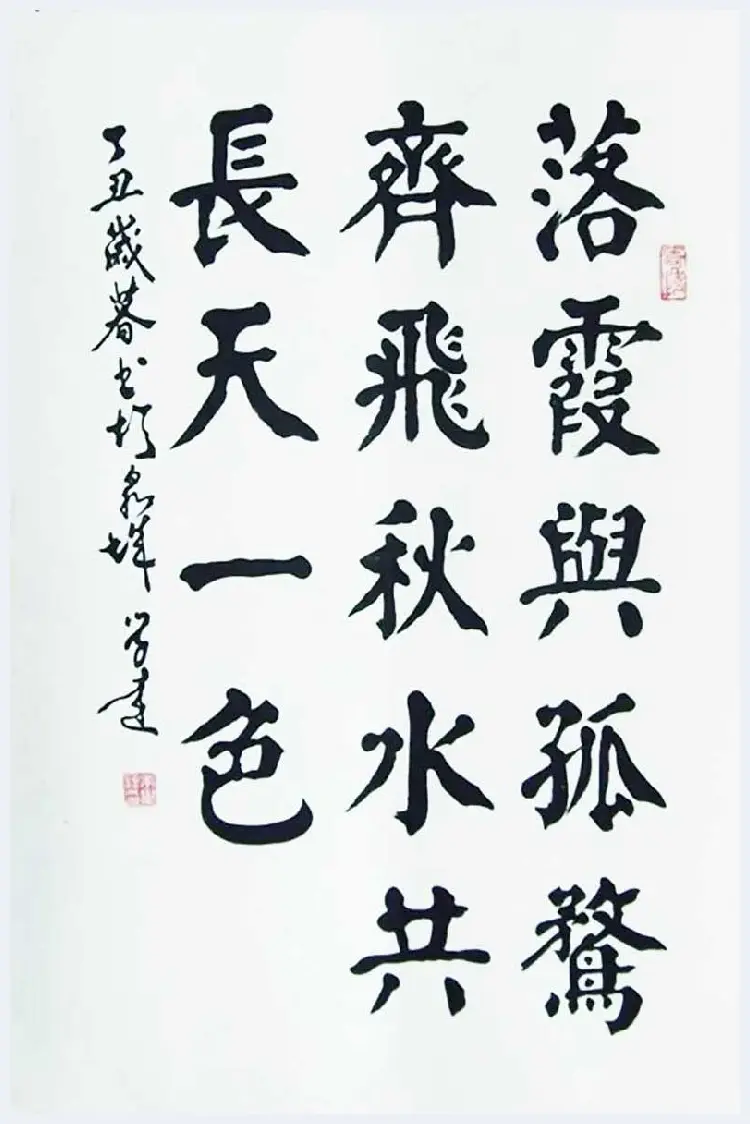 落霞與孤鶩
齊飛秋水共
長天一色
丁丑歲暮書於泉城 学達